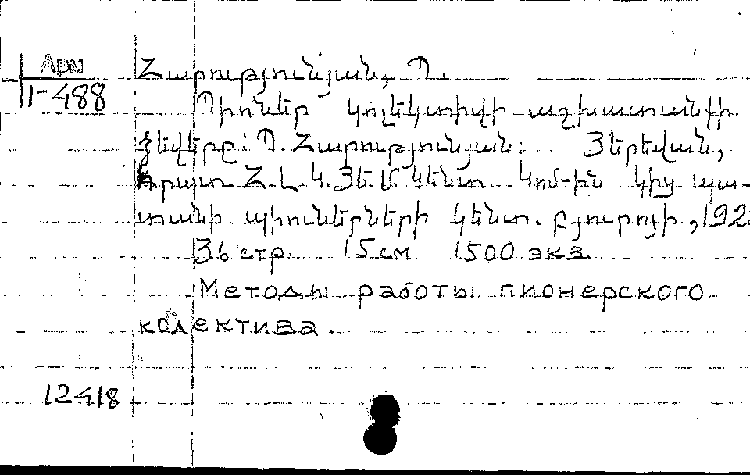 Арм
1-488
Հարությունյան, Պ.
Պիոներ կոլեկտիվի աշխատանքի
ձեվերը: Պ. Հարությունյան: Յերեվան,
Հրատ. Հ.Լ.Կ.ՅԵ.Մ Կենտ. Կոմ-ին կից պա-
տանի պիոներների կենտ. բյուրոյի, 192
36 стр 15 см 1500 экз
Методы работы пионерского
колектива.
12418